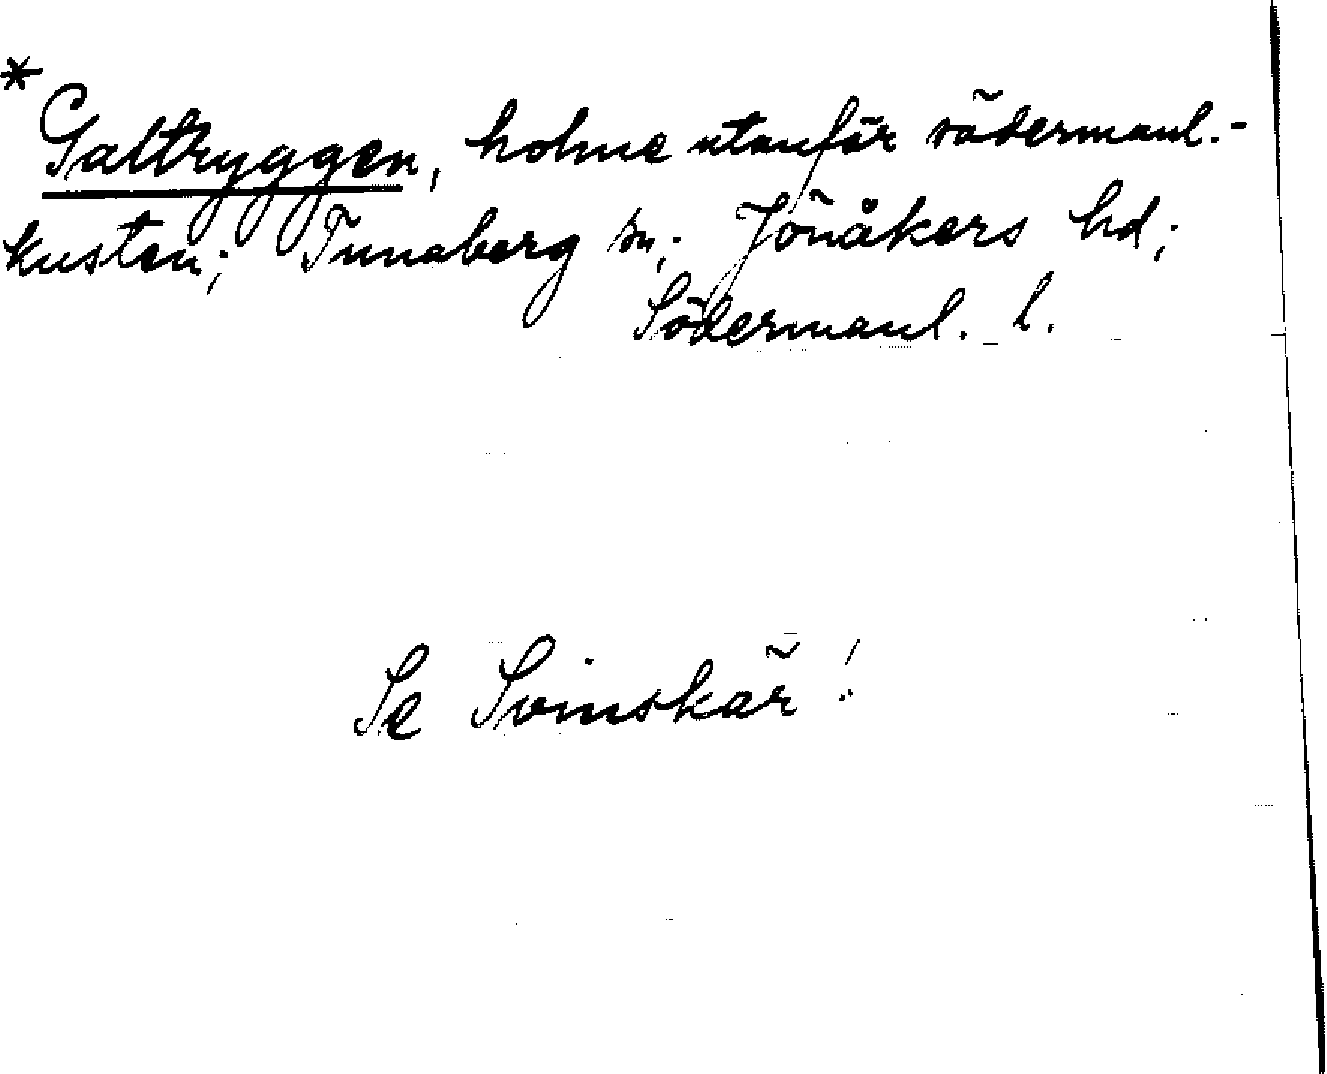 *
Galtryggen, holme utanför södermanl.-
kusten; Tunaberg sn; Jönåkers hd;
Södermanl. l.
Se Svinskär!